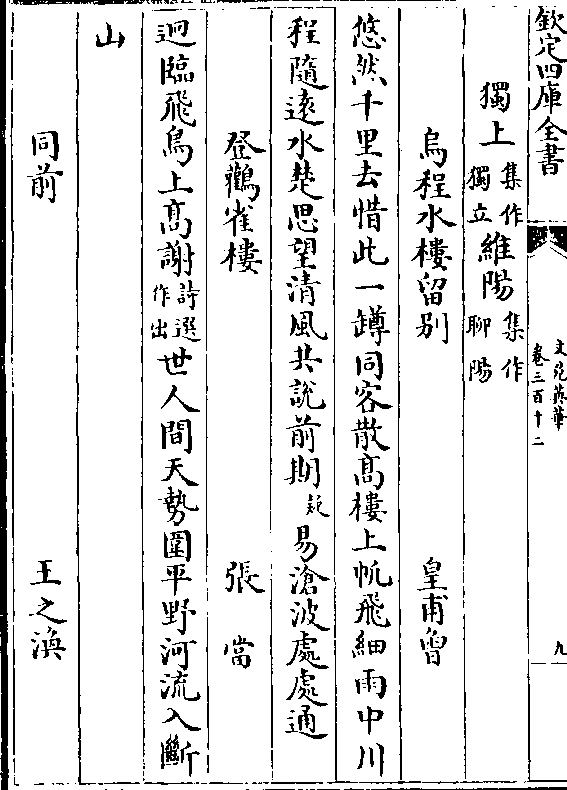 欽定四庫全書
文苑英華
卷三百十二
九
獨上集作獨立維陽集作聊陽
烏程水樓留别　皇甫曾
悠然千里去惜此一罇同客散髙樓上帆飛細雨中川
程隨逺水楚思望清風共説前期易滄波處處通
登鸛雀樓　張當
迥臨飛鳥上髙謝詩選作出世人間天勢圍平野河流入斷
山
同前　王之渙